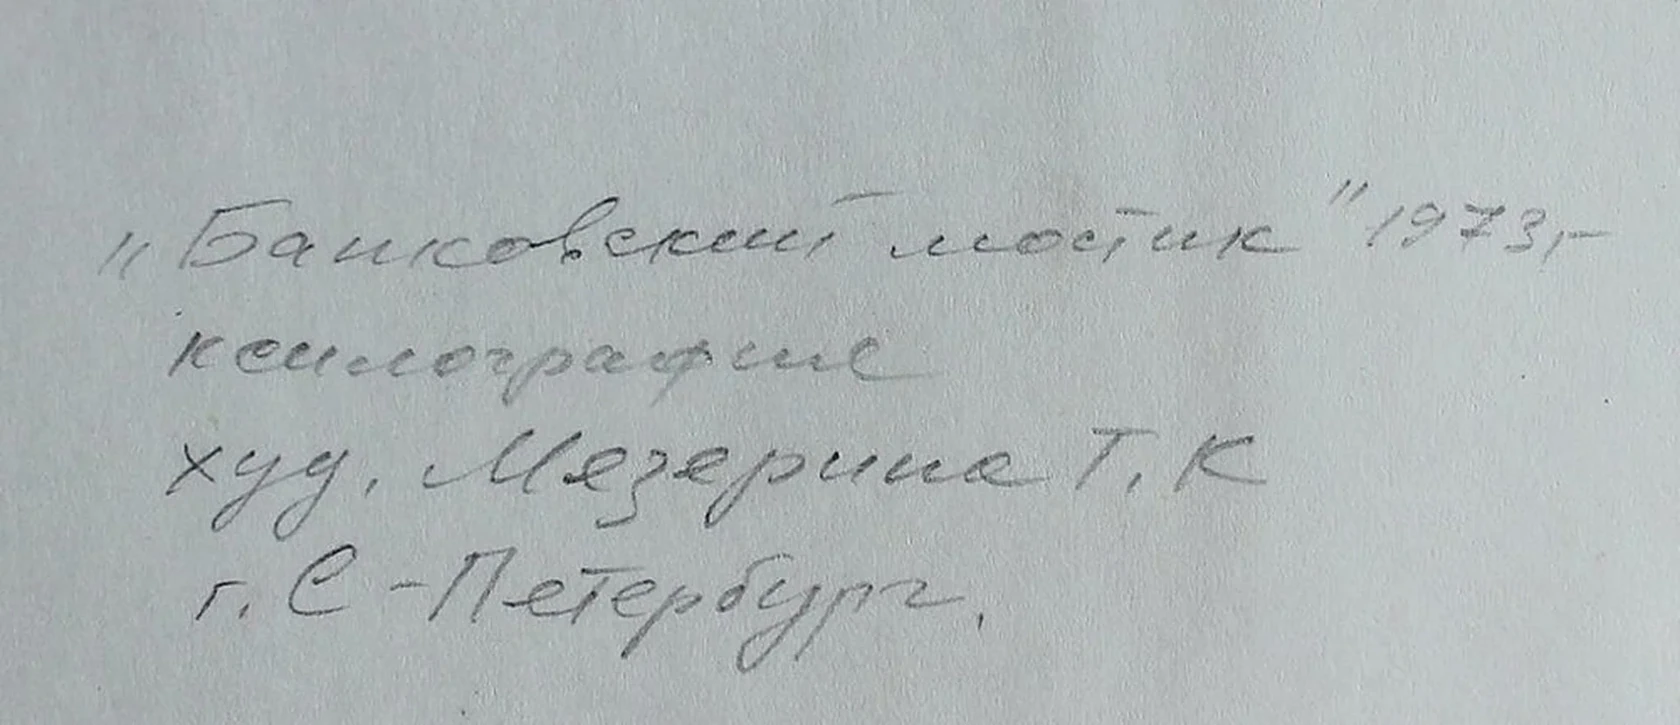 „Банковский мостик" 1973г
ксилография
худ. Мязерина Т. К
г. С-Петербург.